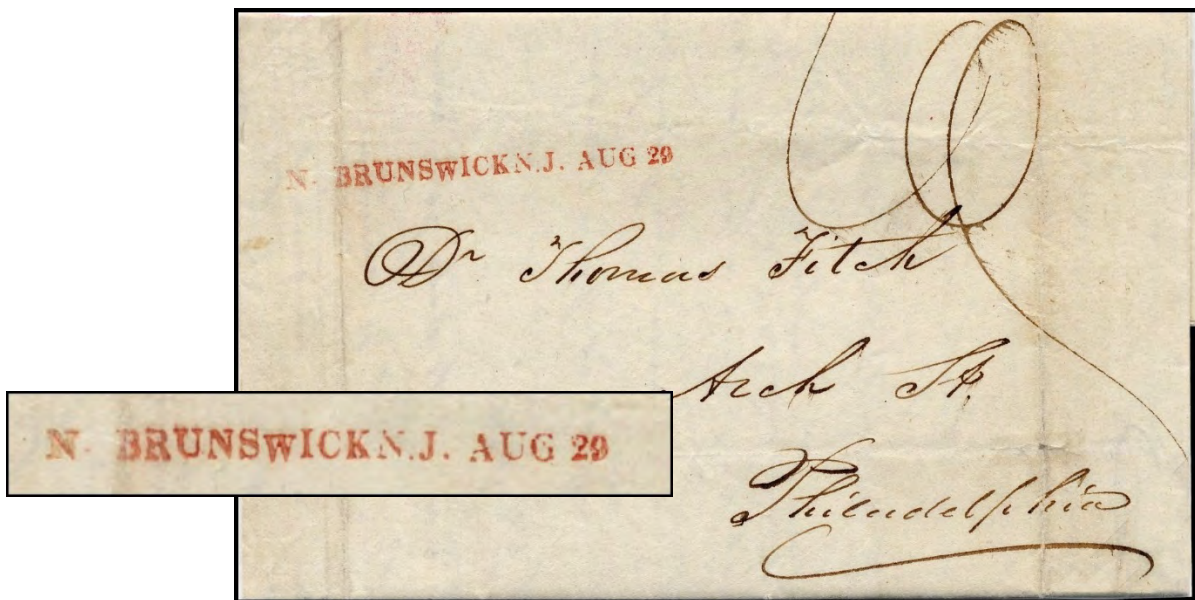 N. BRUNSWICK N.J. AUG 29
10
Dr Thomas Fitch
Arch St.
Philadelphia
N. BRUNSWICK N.J. AUG 29